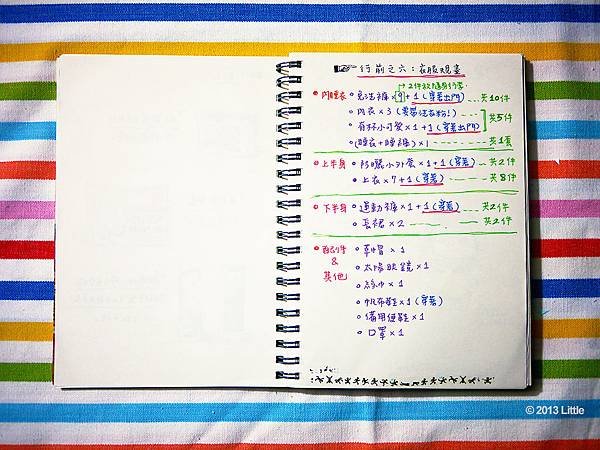 ☞ 行前之六：衣服規畫
→2件放隨身行李
內睡衣 • 免洗褲×9+1(穿著出門) --- 共10件
• 內衣×3 (要帶洗衣粉!)
• 有杯小可愛×1+1(穿著出門) 共5件
• (睡衣+睡褲)×1 --- 共1套
上半身 • 防曬小外套×1+1(穿著) --- 共2件
• 上衣×7+1(穿著) --- 共8件
下半身 • 運動褲×1+1(穿著) --- 共2件
• 長裙×2 --- 共2件
配件&其他 • 草帽×1
• 太陽眼鏡×1
• 絲巾×1
• 帆布鞋×1(穿著)
• 備用便鞋×1
• 口罩×1
© 2013 Little